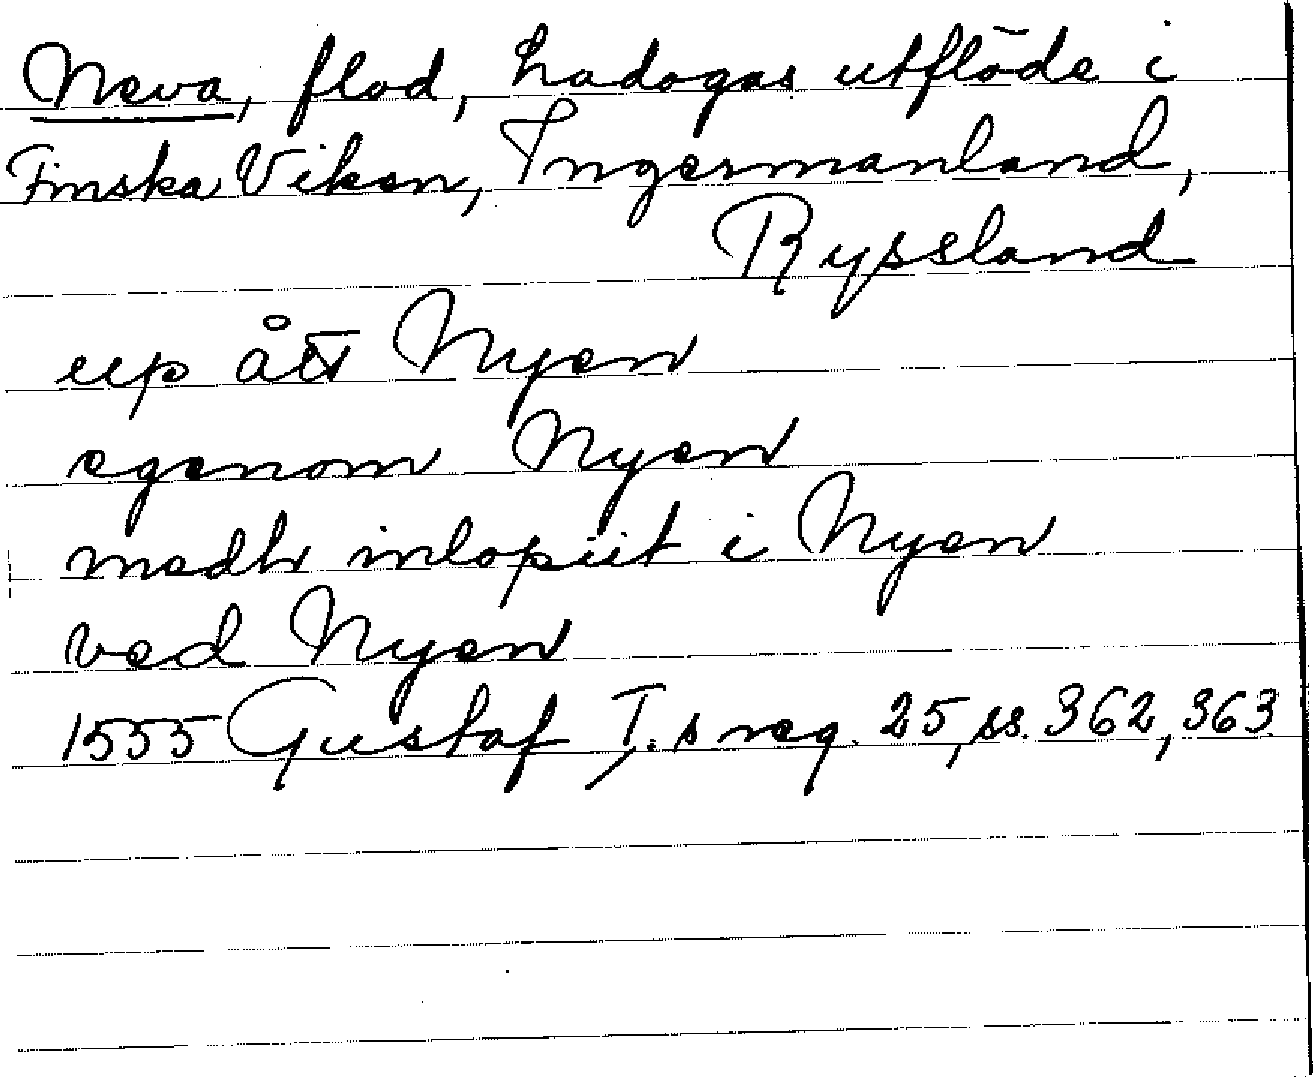 Neva, flod, Ladogas utflöde i
Finska Viken, Ingermanland,
Ryssland
up ått Nyen
egenom Nyen
medh inloput i Nyen
ved Nyen
1555 Gustaf I:s reg. 25, ss. 362, 363